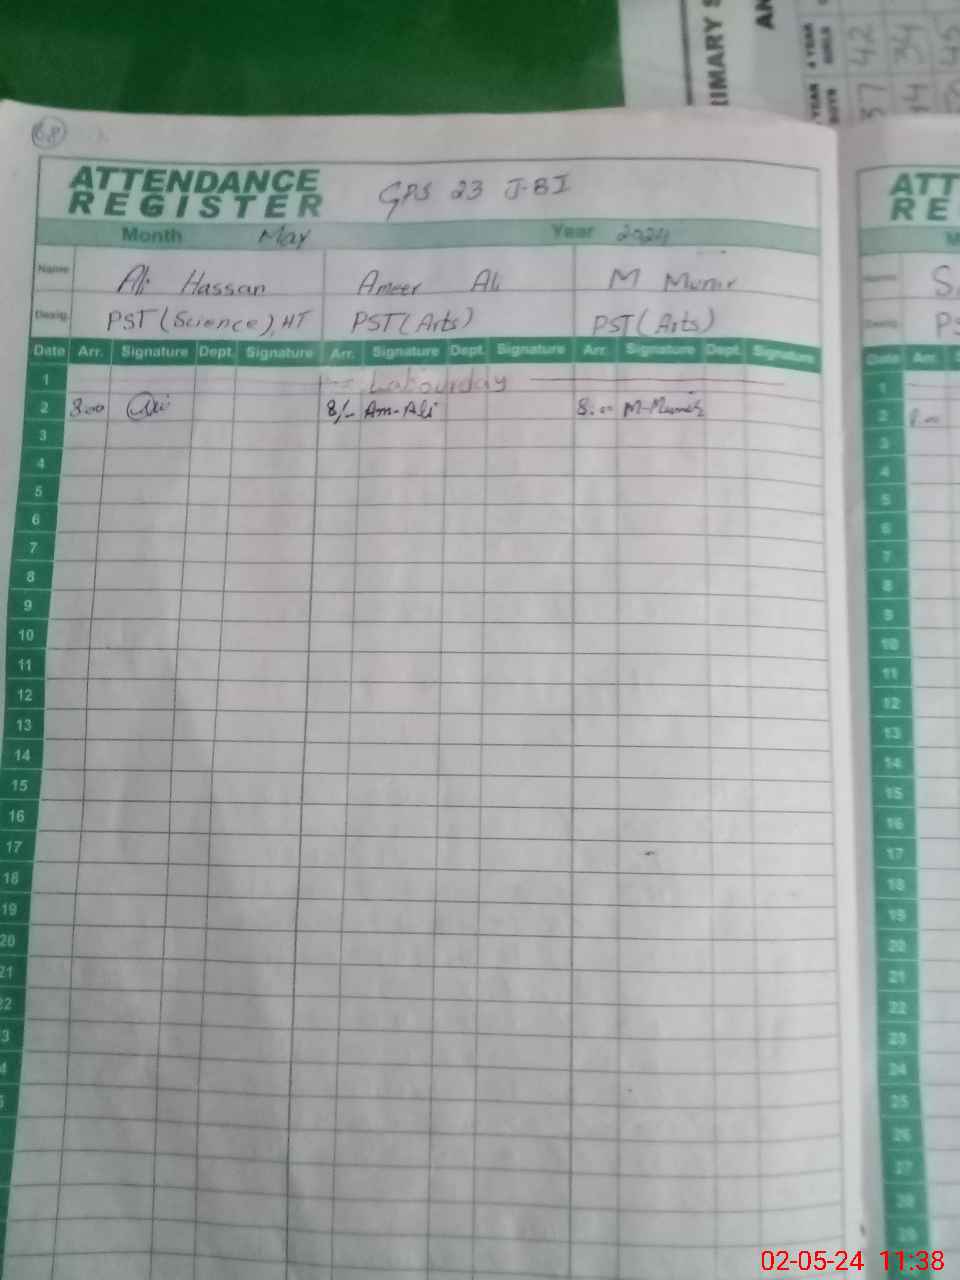 68
ATTENDANCE
REGISTER
GPS 23 J-BI
Month May Year 2024
Name Ali Hassan Ameer Ali M Munir
Desig. PST (Science), HT PST (Arts) PST (Arts)
Date Arr. Signature Dept. Signature Arr. Signature Dept. Signature Arr. Signature Dept. Signature
1 Labourday
2 8.00 Ali 8/- Am-Ali 8.00 M-Munir
3
4
5
6
7
8
9
10
11
12
13
14
15
16
17
18
19
20
21
22
3
4
5
ATT
RE
M
Name S
Desig. PS
Date Arr. S
1
2 8.00
3
4
5
6
7
8
9
10
11
12
13
14
15
16
17
18
19
20
21
22
23
24
25
26
27
28
29
RIMARY S
AN
4 YEAR GIRLS
YEAR BOYS
42 34 45
37 44
02-05-24 11:38